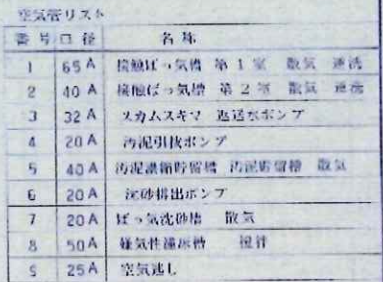 空気管リスト
番号 口径 名称
1 65A 接触ばっ気槽 第1室 散気 逆洗
2 40A 接触ばっ気槽 第2室 散気 逆洗
3 32A スカムスキマ 返送水ポンプ
4 20A 汚泥引抜ポンプ
5 40A 汚泥濃縮貯留槽 汚泥貯留槽 散気
6 20A 沈砂排出ポンプ
7 20A ばっ気沈砂槽 散気
8 50A 嫌気性濾床槽 撹拌
9 25A 空気逃し